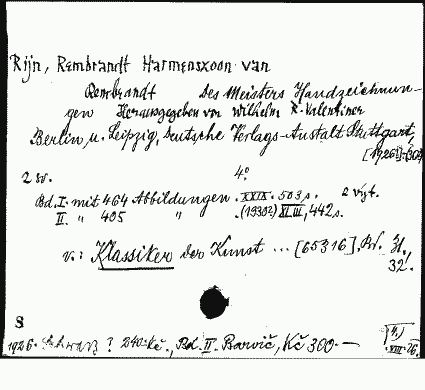 Rijn, Rembrandt Harmenszoon van
Rembrandt Des Meisters Handzeichnun-
gen Herausgegeben von Wilhelm R. Valentiner
Berlin u. Leipzig, Deutsche Verlags-Anstalt Stuttgart,
2 sv. 4°
Bd. I. mit 464 Abbildungen. XXIX. 503 s. 2 výt.
II. " 405 " (1930?) XLIII, 442 s.
v.: Klassiker der Kunst ... [65316], Bd. 31.
32.
8
1926. ? 240 Kč., Bd. II. Barvič, Kč 300.—